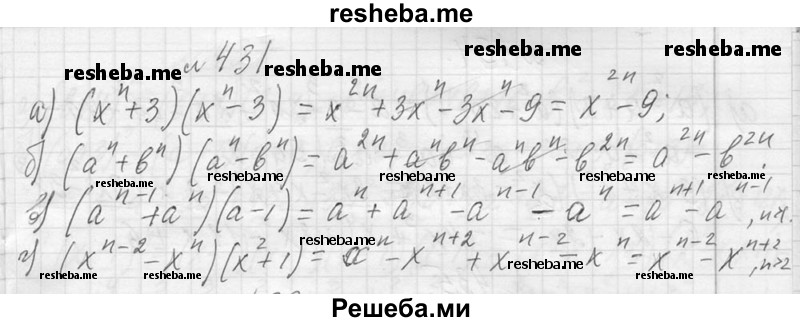 resheba.me
№ 431
resheba.me resheba.me
а) (xⁿ+3)(xⁿ-3) = x²ⁿ+3xⁿ-3xⁿ-9 = x²ⁿ-9;
б) (aⁿ+bⁿ)(aⁿ-bⁿ) = a²ⁿ+aⁿbⁿ-aⁿbⁿ-b²ⁿ = a²ⁿ-b²ⁿ;
resheba.me resheba.me resheba.me resheba.me
в) (aⁿ⁻¹+aⁿ)(a-1) = aⁿ+aⁿ⁺¹-aⁿ⁻¹-aⁿ = aⁿ⁺¹-aⁿ⁻¹,
resheba.me
г) (xⁿ⁻²-xⁿ)(x²+1) = xⁿ-xⁿ⁺²+xⁿ⁻²-xⁿ = xⁿ⁻²-xⁿ⁺², n>2
resheba.me resheba.me resheba.me resheba.me
Решеба.ми